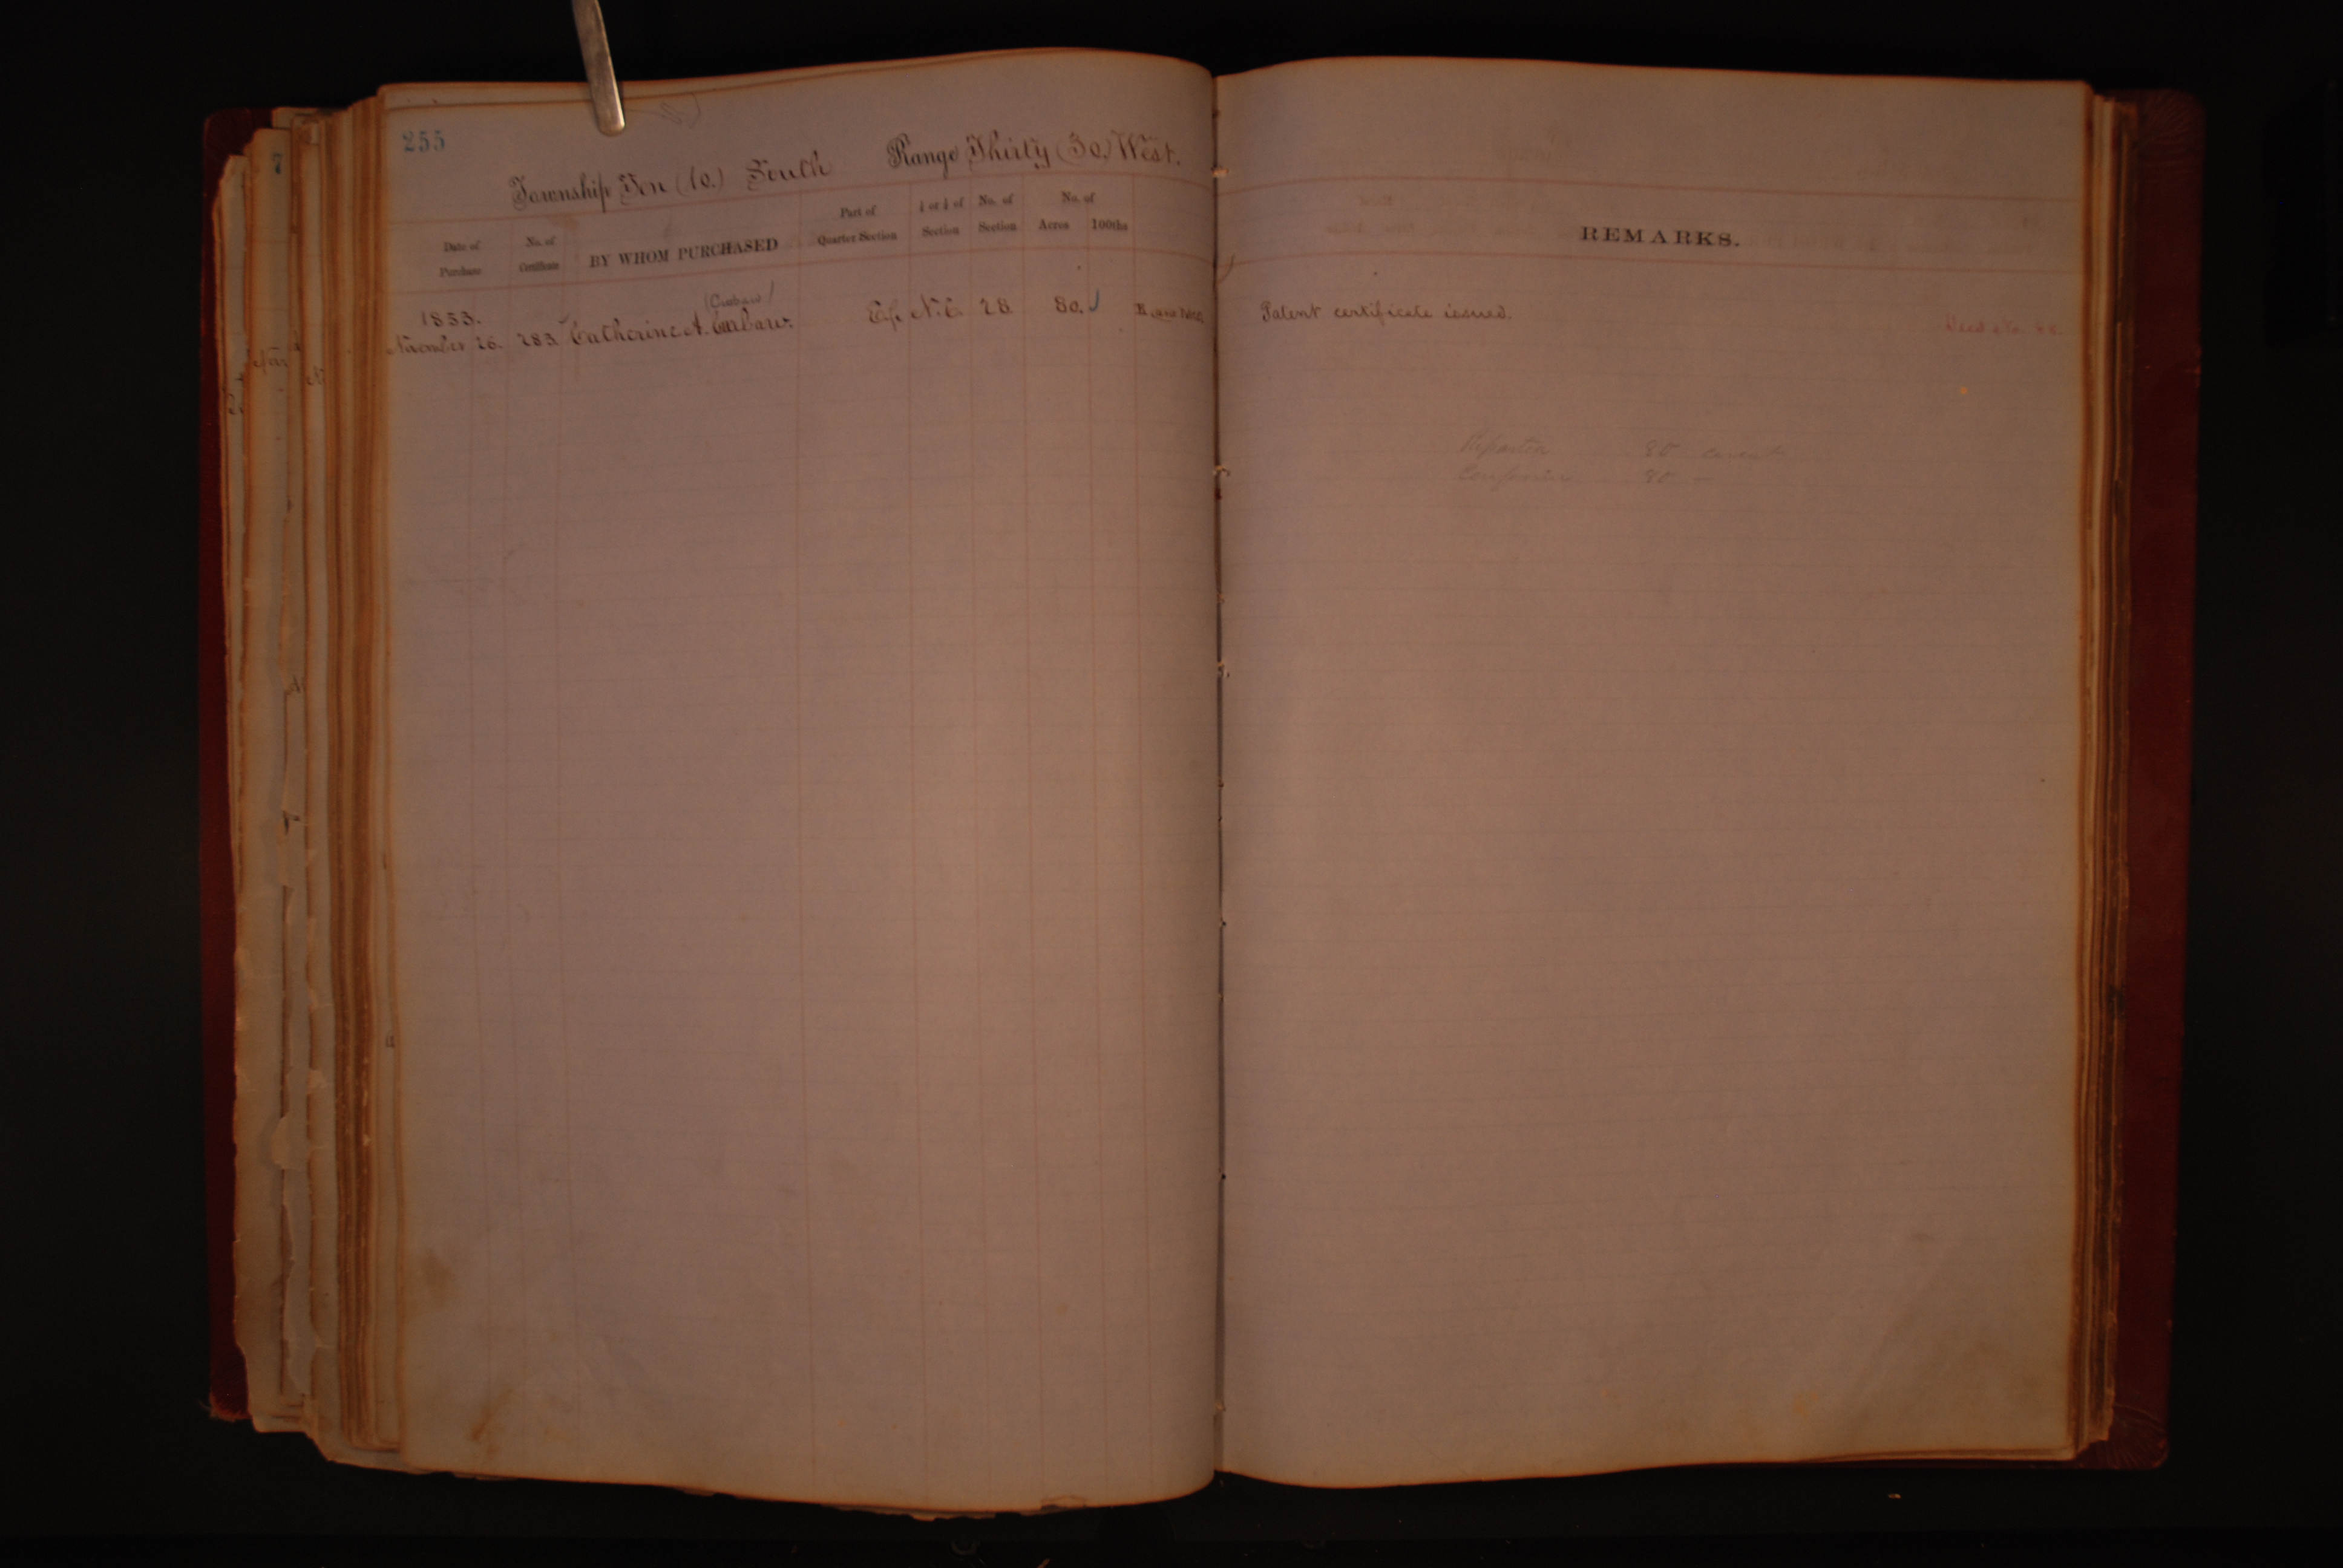 255
Township Ten (10.) South Range Thirty (30) West.
Date of Purchase
No. of Certificate
BY WHOM PURCHASED
Part of Quarter Section
½ or ¼ of Section
No. of Section
No. of Acres 100ths
REMARKS.
1853.
November 26. 283. Catherine A. 28. 80. Patent certificate issued.
80
80 —
7